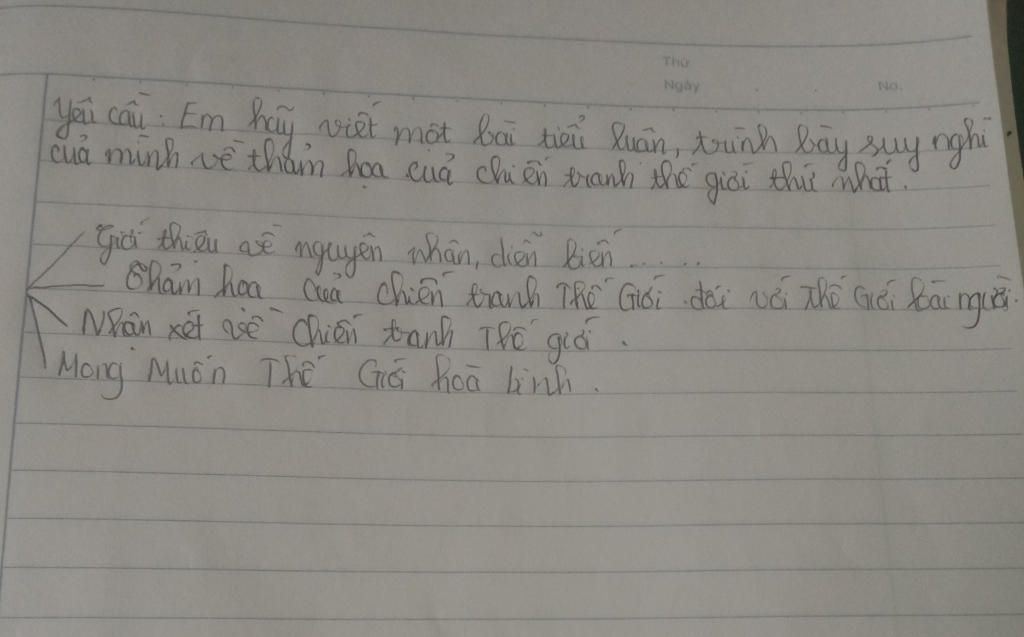 Thứ
Ngày No.
Yêu cầu: Em hãy viết một bài tiểu luận, trình bày suy nghĩ
của mình về thảm họa của chiến tranh thế giới thứ nhất.
Giới thiệu về nguyên nhân, diễn biến.....
Thảm họa của chiến tranh Thế Giới đối với Thế Giới loài người.
Nhận xét về chiến tranh Thế giới.
Mong Muốn Thế Giới hoà bình.